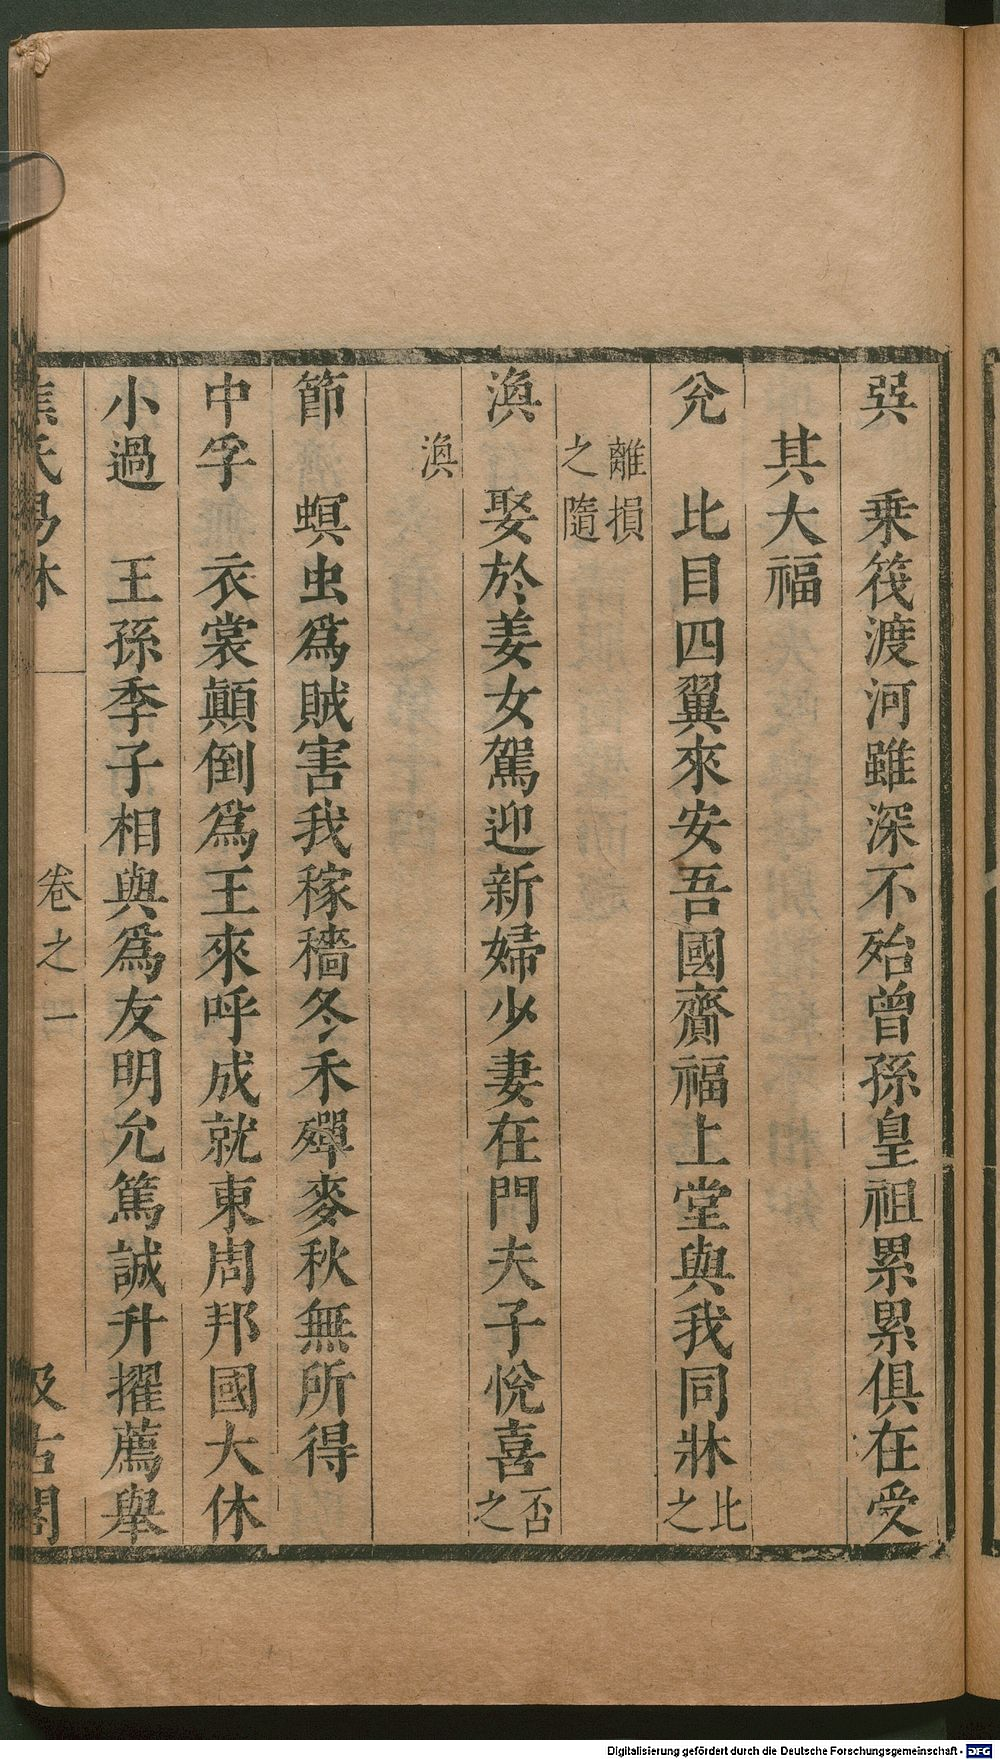 巽　乗筏渡河雖深不殆曾孫皇祖累累俱在受
其大福
兊　比目四翼來安吾國齎福上堂與我同牀比之
離損之隨
渙　娶於姜女駕迎新婦少妻在門夫子悅喜否之
渙
節　螟虫爲賊害我稼穡冬禾殫麥秋無所得
中孚　衣裳顚倒爲王來呼成就東周邦國大休
小過　王孫季子相與爲友明允篤誠升擢薦舉
焦氏易林　卷之一　汲古閣
Digitalisierung gefördert durch die Deutsche Forschungsgemeinschaft - DFG